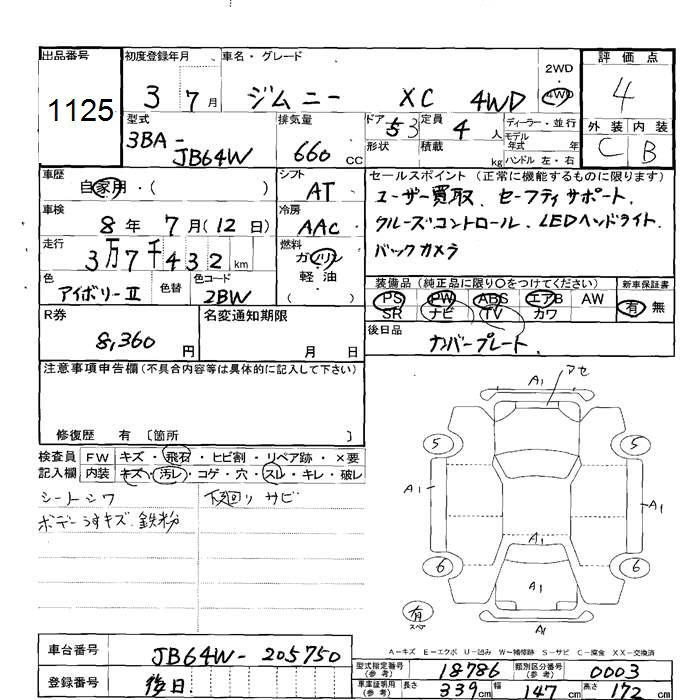 出品番号
1125
初度登録年月 車名・グレード
3 7月 ジムニー XC 4WD
2WD
4WD
評価点
4
外装 内装
C B
型式
3BA-
JB64W
排気量
660 CC
ドア 3 定員 4 人
形状 積載 kg
ディーラー・並行
モデル年式 年
ハンドル 左・右
車歴
自家用・( )
シフト
AT
車検
8年 7月(12日)
冷房
AAC
走行
3万7千432 km
燃料
ガソリン
軽油
( )
色
アイボリーⅡ
色替
色コード
2BW
セールスポイント(正常に機能するものに限ります)
ユーザー買取、セーフティサポート、
クルーズコントロール、LEDヘッドライト、
バックカメラ
装備品(純正品に限り○をつけてください) 新車保証書
PS PW ABS エアB AW
SR ナビ TV カワ
有 無
R券
8,360 円
名変通知期限
月 日
後日品
ナンバープレート、
注意事項申告欄(不具合内容等は具体的に記入して下さい)
修復歴 有 〔箇所 〕
検査員 FW キズ・飛石・ヒビ割・リペア跡・×要
記入欄 内装 キズ・汚レ・コゲ・穴・スレ・キレ・破レ
シートシワ
ボデーうすキズ、鉄粉
下廻りサビ
A1
アセ
5
5
A1
A1
A1
6
6
A1
有
スペア
A1
A-キズ E-エクボ U-凹み W-補修跡 S-サビ C-腐食 XX-交換済
車台番号 JB64W-205750
登録番号 後日
型式指定番号(参考) 18786 類別区分番号(参考) 0003
車庫証明用(参考) 長さ 339cm 幅 147cm 高さ 172cm